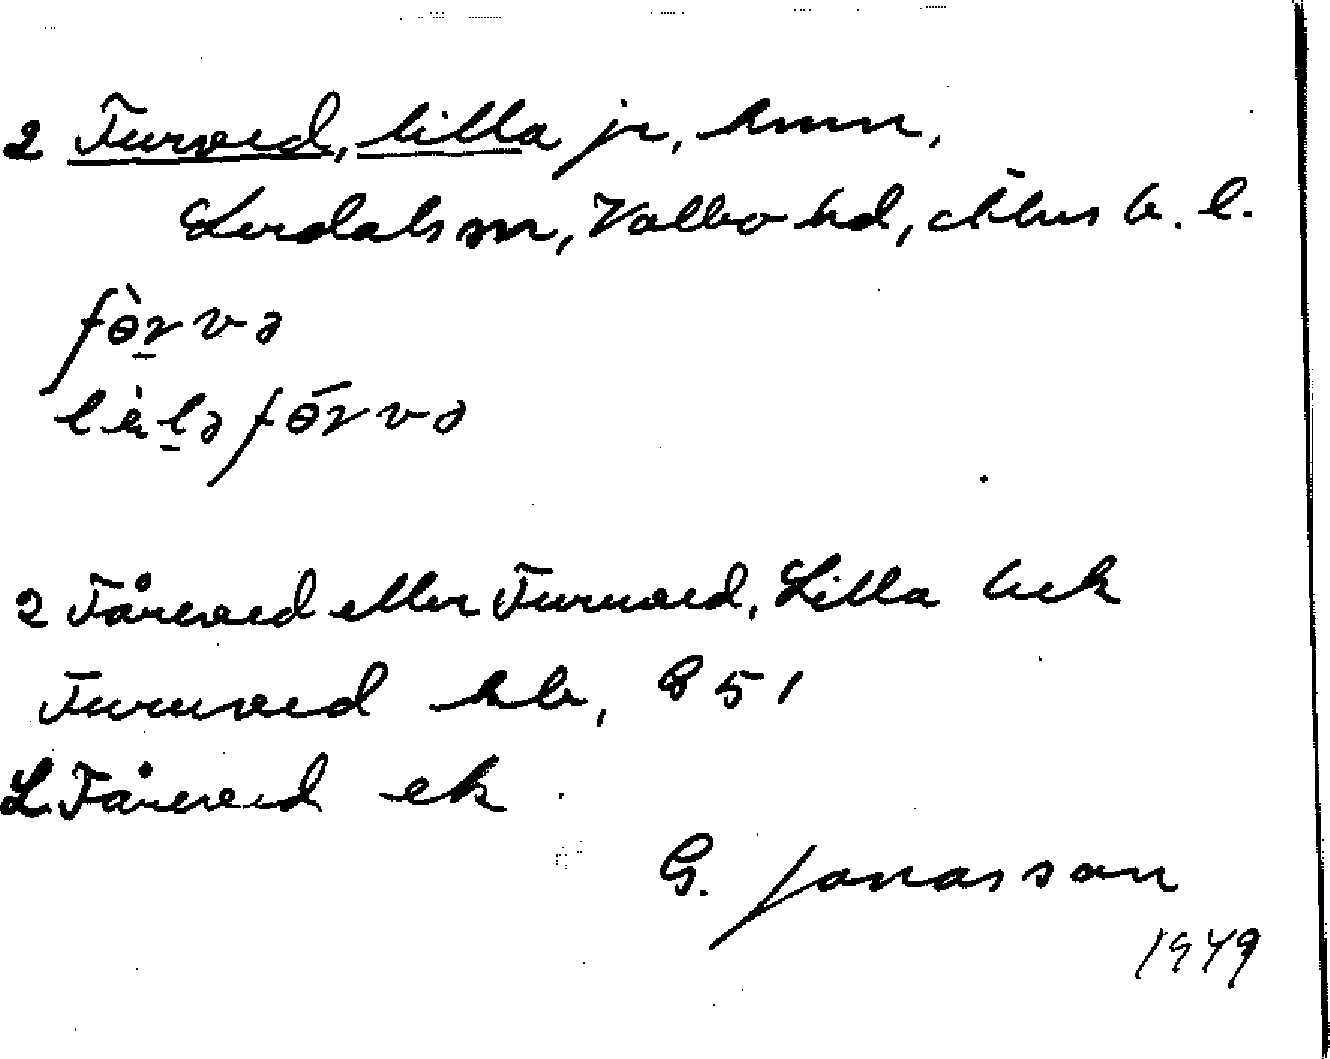 2 Furved, lilla jr, hmn,
Lerdals sn, Valbo hd, Älvs b. l.
fòrvə
lìləfórvə
2 Fåreved eller Furuved, Lilla bek
Furuved hb, 851
L. Fåreved ek
G. Jonasson
1949